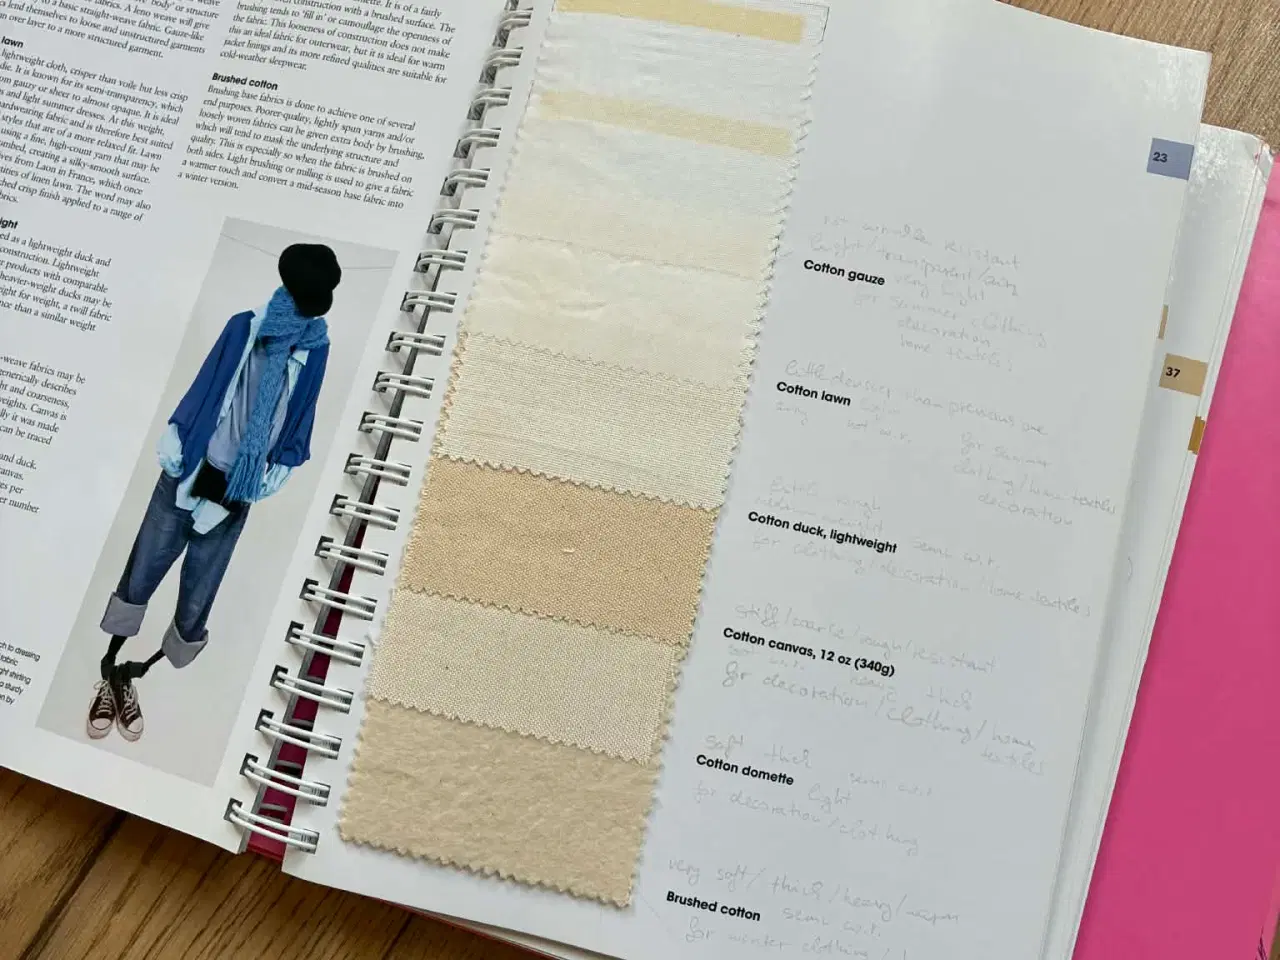 'body' or structure
fabrics. A leno weave will give
to a basic straight-weave fabric. Gauze-like
lend themselves to loose and unstructured garments
over layer to a more structured garment.
lawn
lightweight cloth, crisper than voile but less crisp
die. It is known for its semi-transparency, which
om gauzy or sheer to almost opaque. It is ideal
s and light summer dresses. At this weight,
ardwearing fabric and is therefore best suited
styles that are of a more relaxed fit. Lawn
using a fine, high-count yarn that may be
mbed, creating a silky-smooth surface.
ves from Laon in France, which once
tities of linen lawn. The word may also
ched crisp finish applied to a range of
brics.
ight
ed as a lightweight duck and
construction. Lightweight
r products with comparable
heavier-weight ducks may be
eight for weight, a twill fabric
nce than a similar weight
-weave fabrics may be
generically describes
ht and coarseness,
weights. Canvas is
lly it was made
can be traced
and duck.
canvas.
es per
er number
ch to dressing
fabric
ght shirting
a sturdy
n by
It is of a fairly
construction with a brushed surface. The
brushing tends to 'fill in' or camouflage the openness of
the fabric. This looseness of construction does not make
this an ideal fabric for outerwear, but it is ideal for warm
jacket linings and its more refined qualities are suitable for
cold-weather sleepwear.
Brushed cotton
Brushing base fabrics is done to achieve one of several
end purposes. Poorer-quality, lightly spun yarns and/or
loosely woven fabrics can be given extra body by brushing,
which will tend to mask the underlying structure and
quality. This is especially so when the fabric is brushed on
both sides. Light brushing or milling is used to give a fabric
a warmer touch and convert a mid-season base fabric into
a winter version.
23
not wrinkle resistant
light/transparent/airy
Cotton gauze very light
for summer clothing
decoration
home textiles
37
little denser than previous one
Cotton lawn light
airy not w.r. for summer
clothing/home textiles
decoration
little rough
medium weight
Cotton duck, lightweight semi w.r.
for clothing/decoration/home textiles
stiff/coarse/rough/resistant
Cotton canvas, 12 oz (340g)
heavy thick
for decoration/clothing/home
textiles
soft thick semi w.r.
Cotton domette light
for decoration/clothing
very soft/thick/heavy/warm
Brushed cotton semi w.r.
for winter clothing/